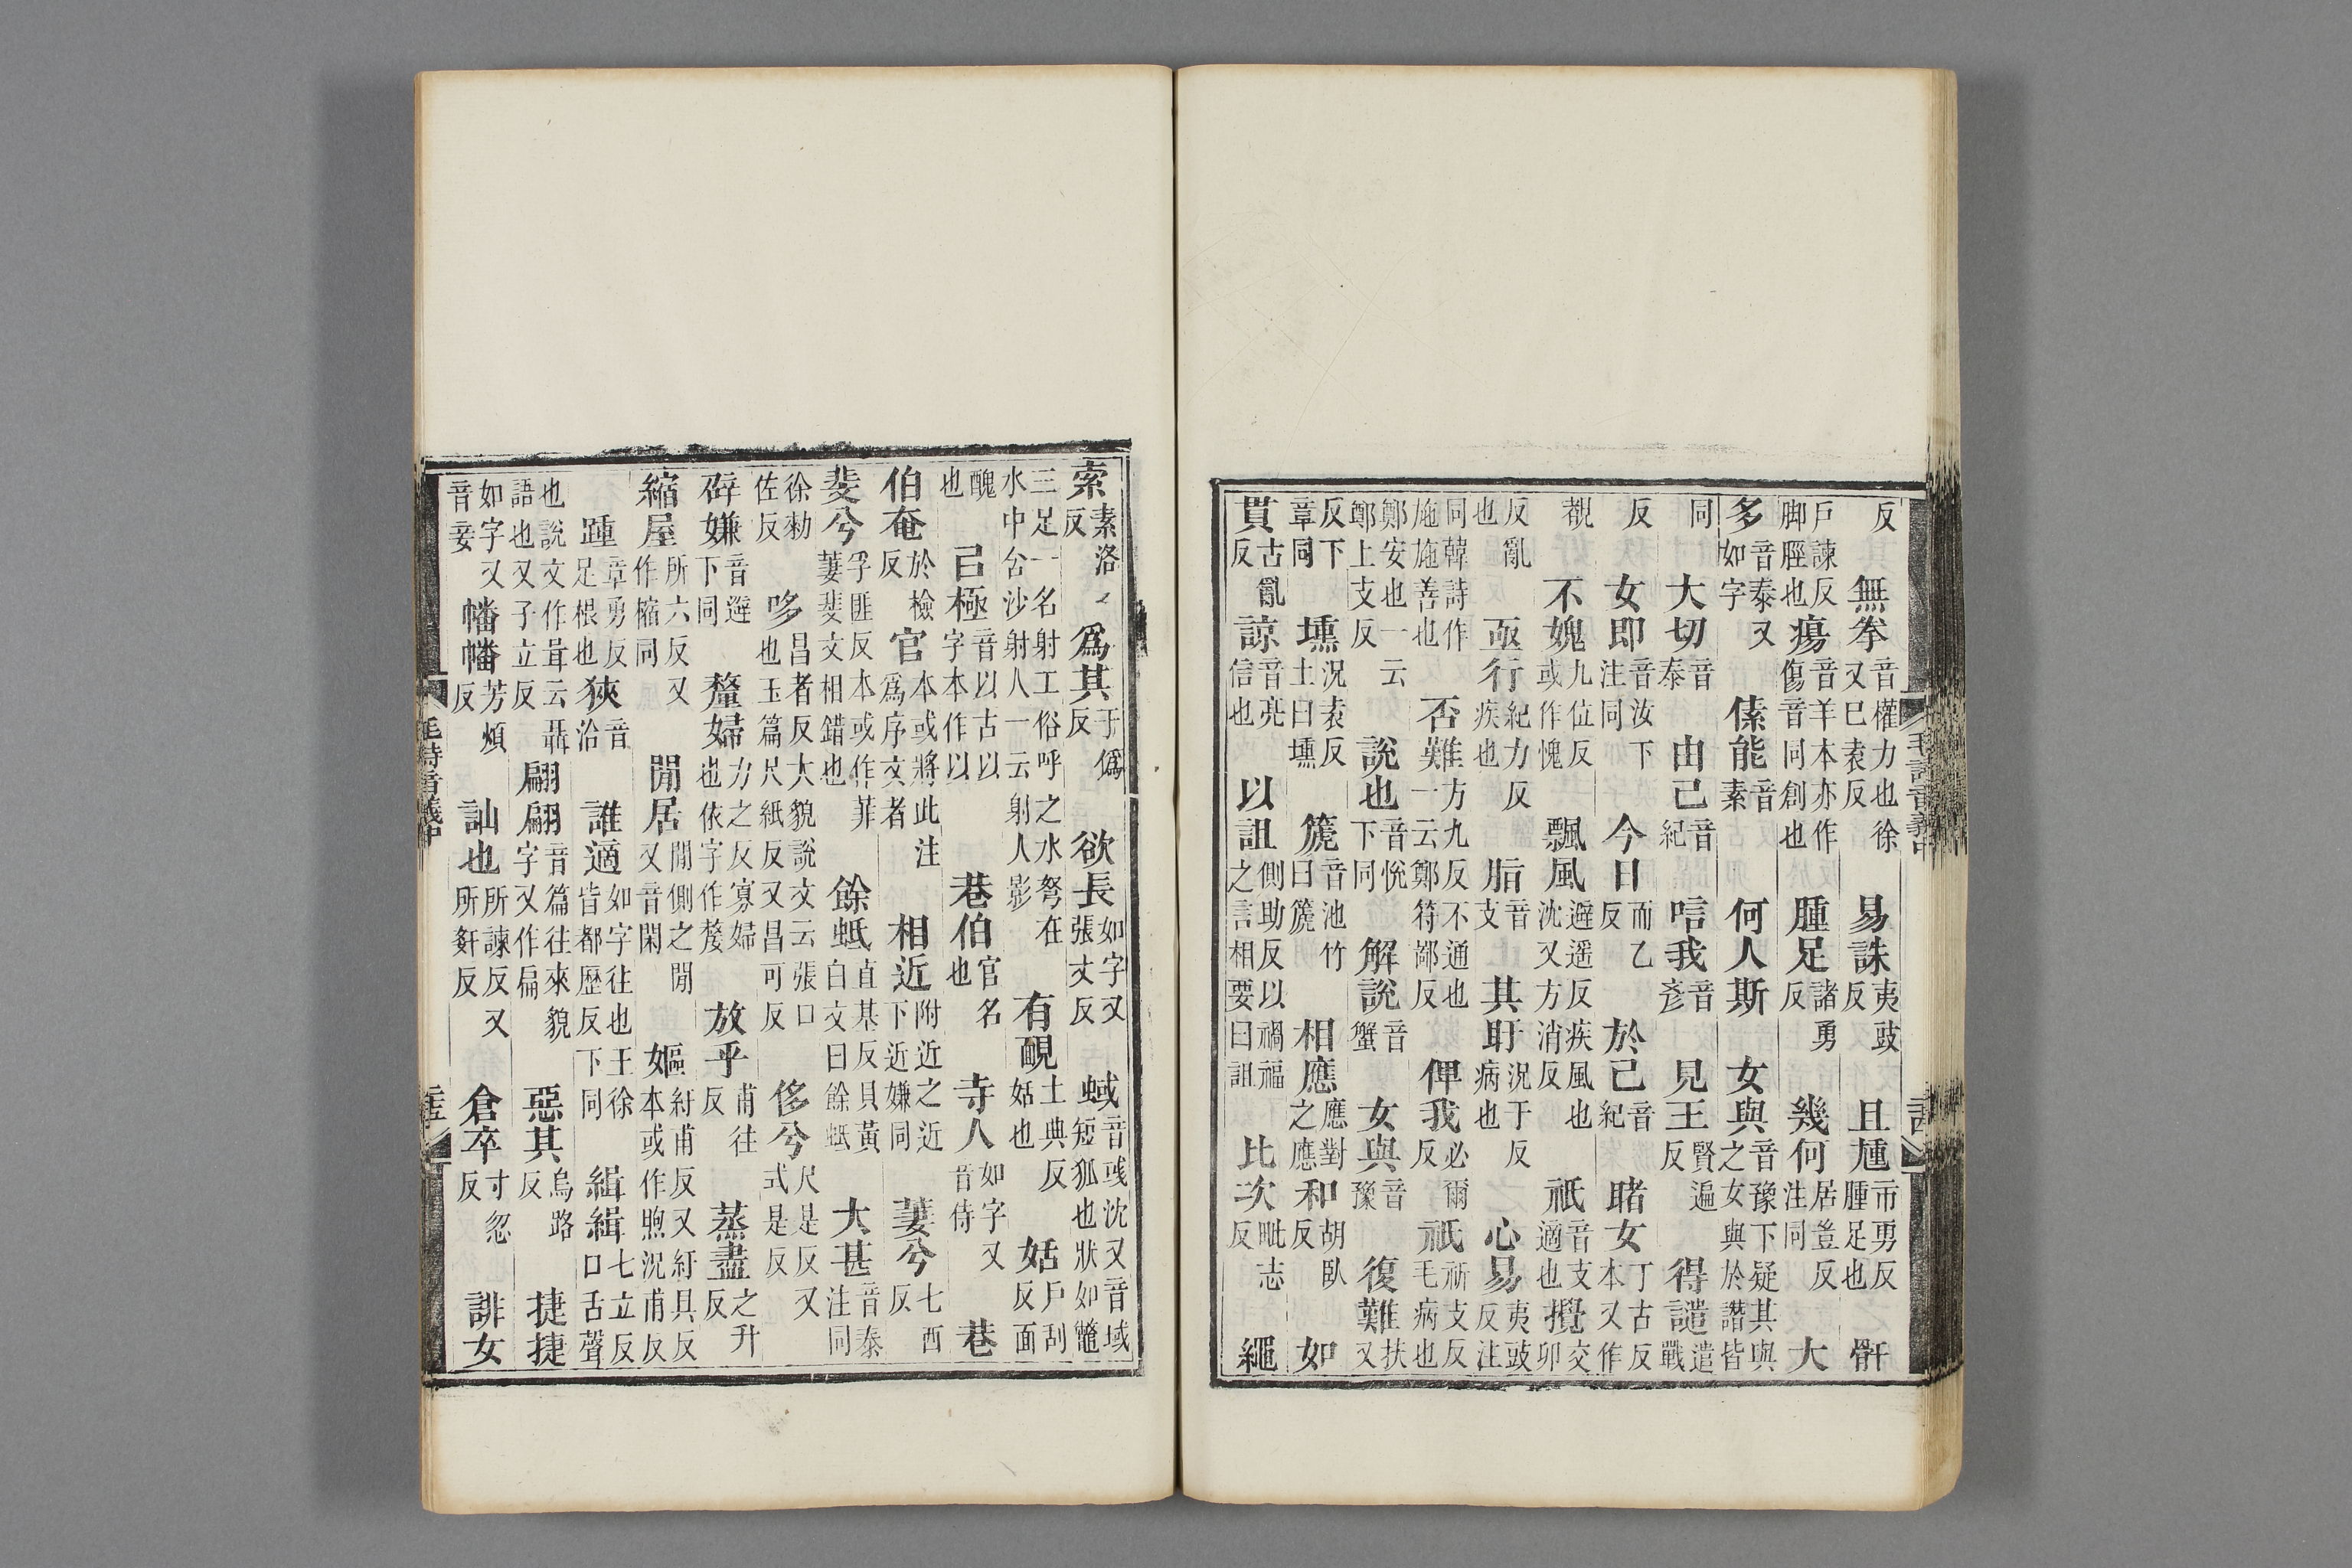 反無拳音權力也徐又巳袁反易誅夷豉反且尰市勇反腫足也骭
戶諫反脚脛也瘍音羊本亦作傷音同創也腫足諸勇反幾何居豈反注同大
多音泰又如字傃能音素何人斯女與音豫下疑其與之女與於譖皆
同大切音泰由己音紀唁我音彥見王賢遍反得譴遣戰
反女即音汝下注同今日而乙反於己音紀睹女丁古反本又作
覩不媿九位反或作愧飄風避遥反疾風也沈又方消反祇音支適也攪交卯
反亂也亟行紀力反疾也脂音支其盱況于反病也心易夷豉反注
同韓詩作施施善也否難方九反不通也一云鄭符鄙反俾我必爾反祇祈支反毛病也
鄭安也一云鄭上支反說也音悅下同解說音蟹女與音豫復難扶又
反下章同壎況袁反土曰壎篪音池竹曰篪相應應對之應和胡臥反如
貫古亂反諒音亮信也以詛側助反以禍福之言相要曰詛比次毗志反繩
毛詩音義中
索素洛反爲其于僞反欲長如字又張丈反蜮音或沈又音域短狐也狀如鼈
三足一名射工俗呼之水弩在水中含沙射人一云射人影有靦土典反姡也姡戶刮反面
醜也己極音以古以字本作以巷伯官名也寺人如字又音侍巷
伯奄於檢反官本或將此注爲序文者相近附近之近下近嫌同萋兮七西反
斐兮孚匪反本或作菲萋斐文相錯也餘蚳直基反貝黃白文曰餘蚳大甚音泰注同
徐勑佐反哆昌者反大貌說文云張口也玉篇尺紙反又昌可反侈兮尺是反又式是反
辟嫌音避下同釐婦力之反寡婦也依字作嫠放乎甫往反蒸盡之升反
縮屋所六反又作樎同閒居閒側之閒又音閑嫗紆甫反又紆具反本或作煦況甫反
踵章勇反足根也狹音洽誰適如字往也王徐皆都歷反下同緝緝七立反口舌聲
也說文作咠云聶語也又子立反翩翩音篇往來貌字又作扁惡其烏路反捷捷
如字又音妾幡幡芳煩反訕也所諫反又所姦反倉卒寸忽反誹女
毛詩音義中